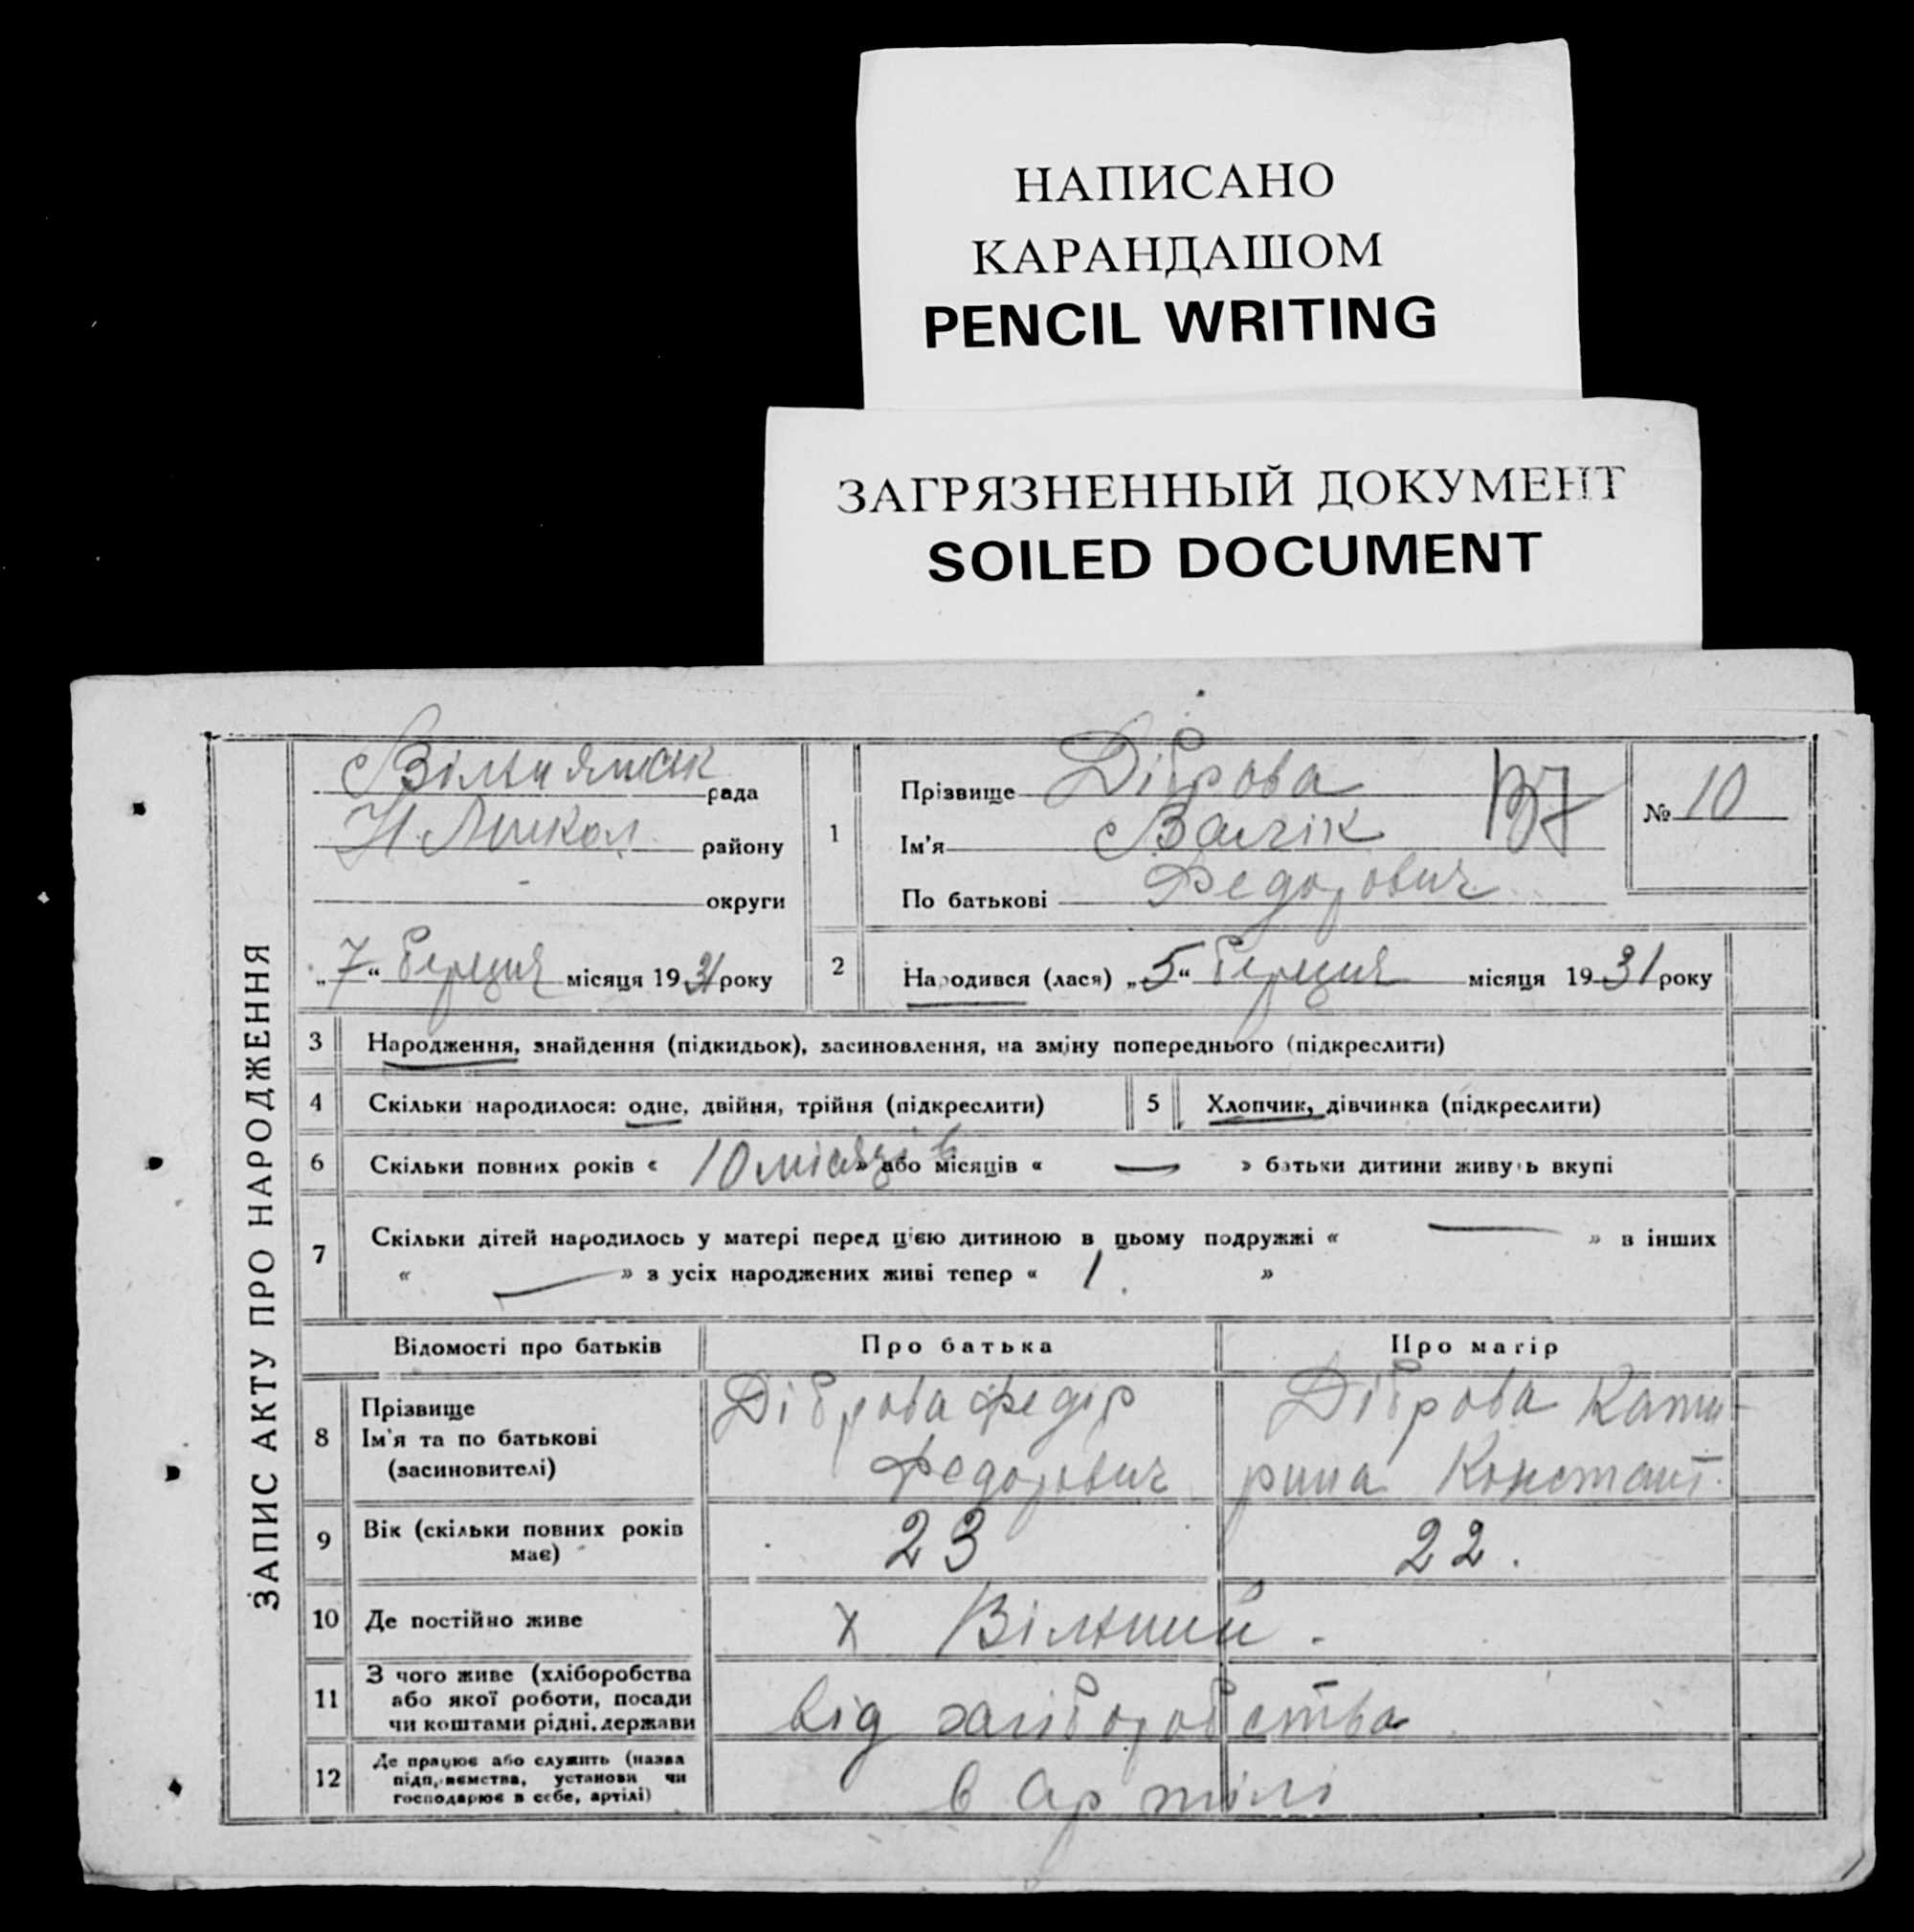 НАПИСАНО
КАРАНДАШОМ
PENCIL WRITING
ЗАГРЯЗНЕННЫЙ ДОКУМЕНТ
SOILED DOCUMENT
ЗАПИС АКТУ ПРО НАРОДЖЕННЯ
рада
району
округи
„7“ березня місяця 1931 року
1
Прізвище Діброва
Ім'я
По батькові Федорович
№ 10
2
Народився (лася) „5“ березня місяця 1931 року
3 Народження, знайдення (підкидьок), засиновлення, на зміну попереднього (підкреслити)
4 Скільки народилося: одне, двійня, трійня (підкреслити)
5 Хлопчик, дівчинка (підкреслити)
6 Скільки повних років « 10 місяців » або місяців « — » батьки дитини живуть вкупі
7 Скільки дітей народилось у матері перед цією дитиною в цьому подружжі « — » в інших
« — » з усіх народжених живі тепер « 1. »
Відомості про батьків
Про батька
Про матір
8 Прізвище
Ім'я та по батькові
(засиновителі)
Діброва Федір
Федорович
Діброва Кате-
рина Констант.
9 Вік (скільки повних років
має)
23
22.
10 Де постійно живе
х Вільний.
11 З чого живе (хліборобства
або якої роботи, посади
чи коштами рідні, держави
від хліборобства
12 Де працює або служить (назва
підприємства, установи чи
господарює в себе, артілі)
в Артілі